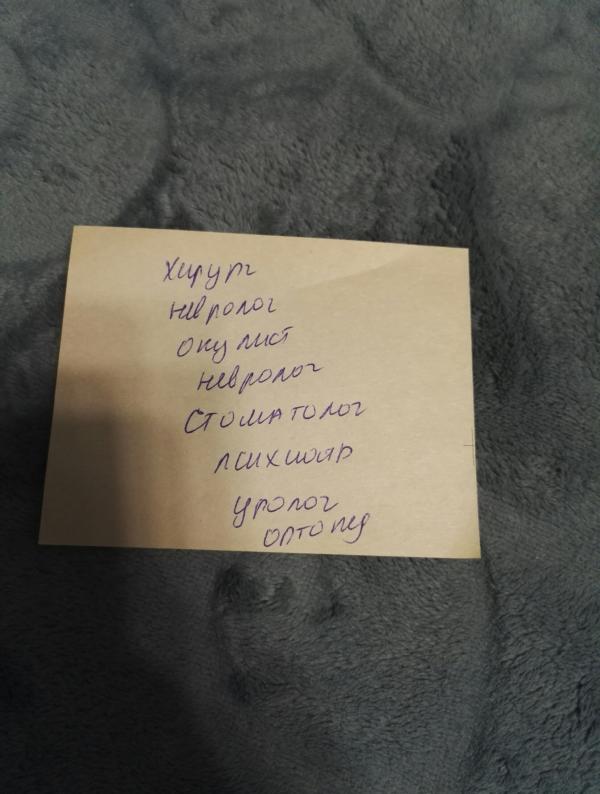 хирург
невролог
окулист
невролог
стоматолог
психиатр
уролог
ортопед